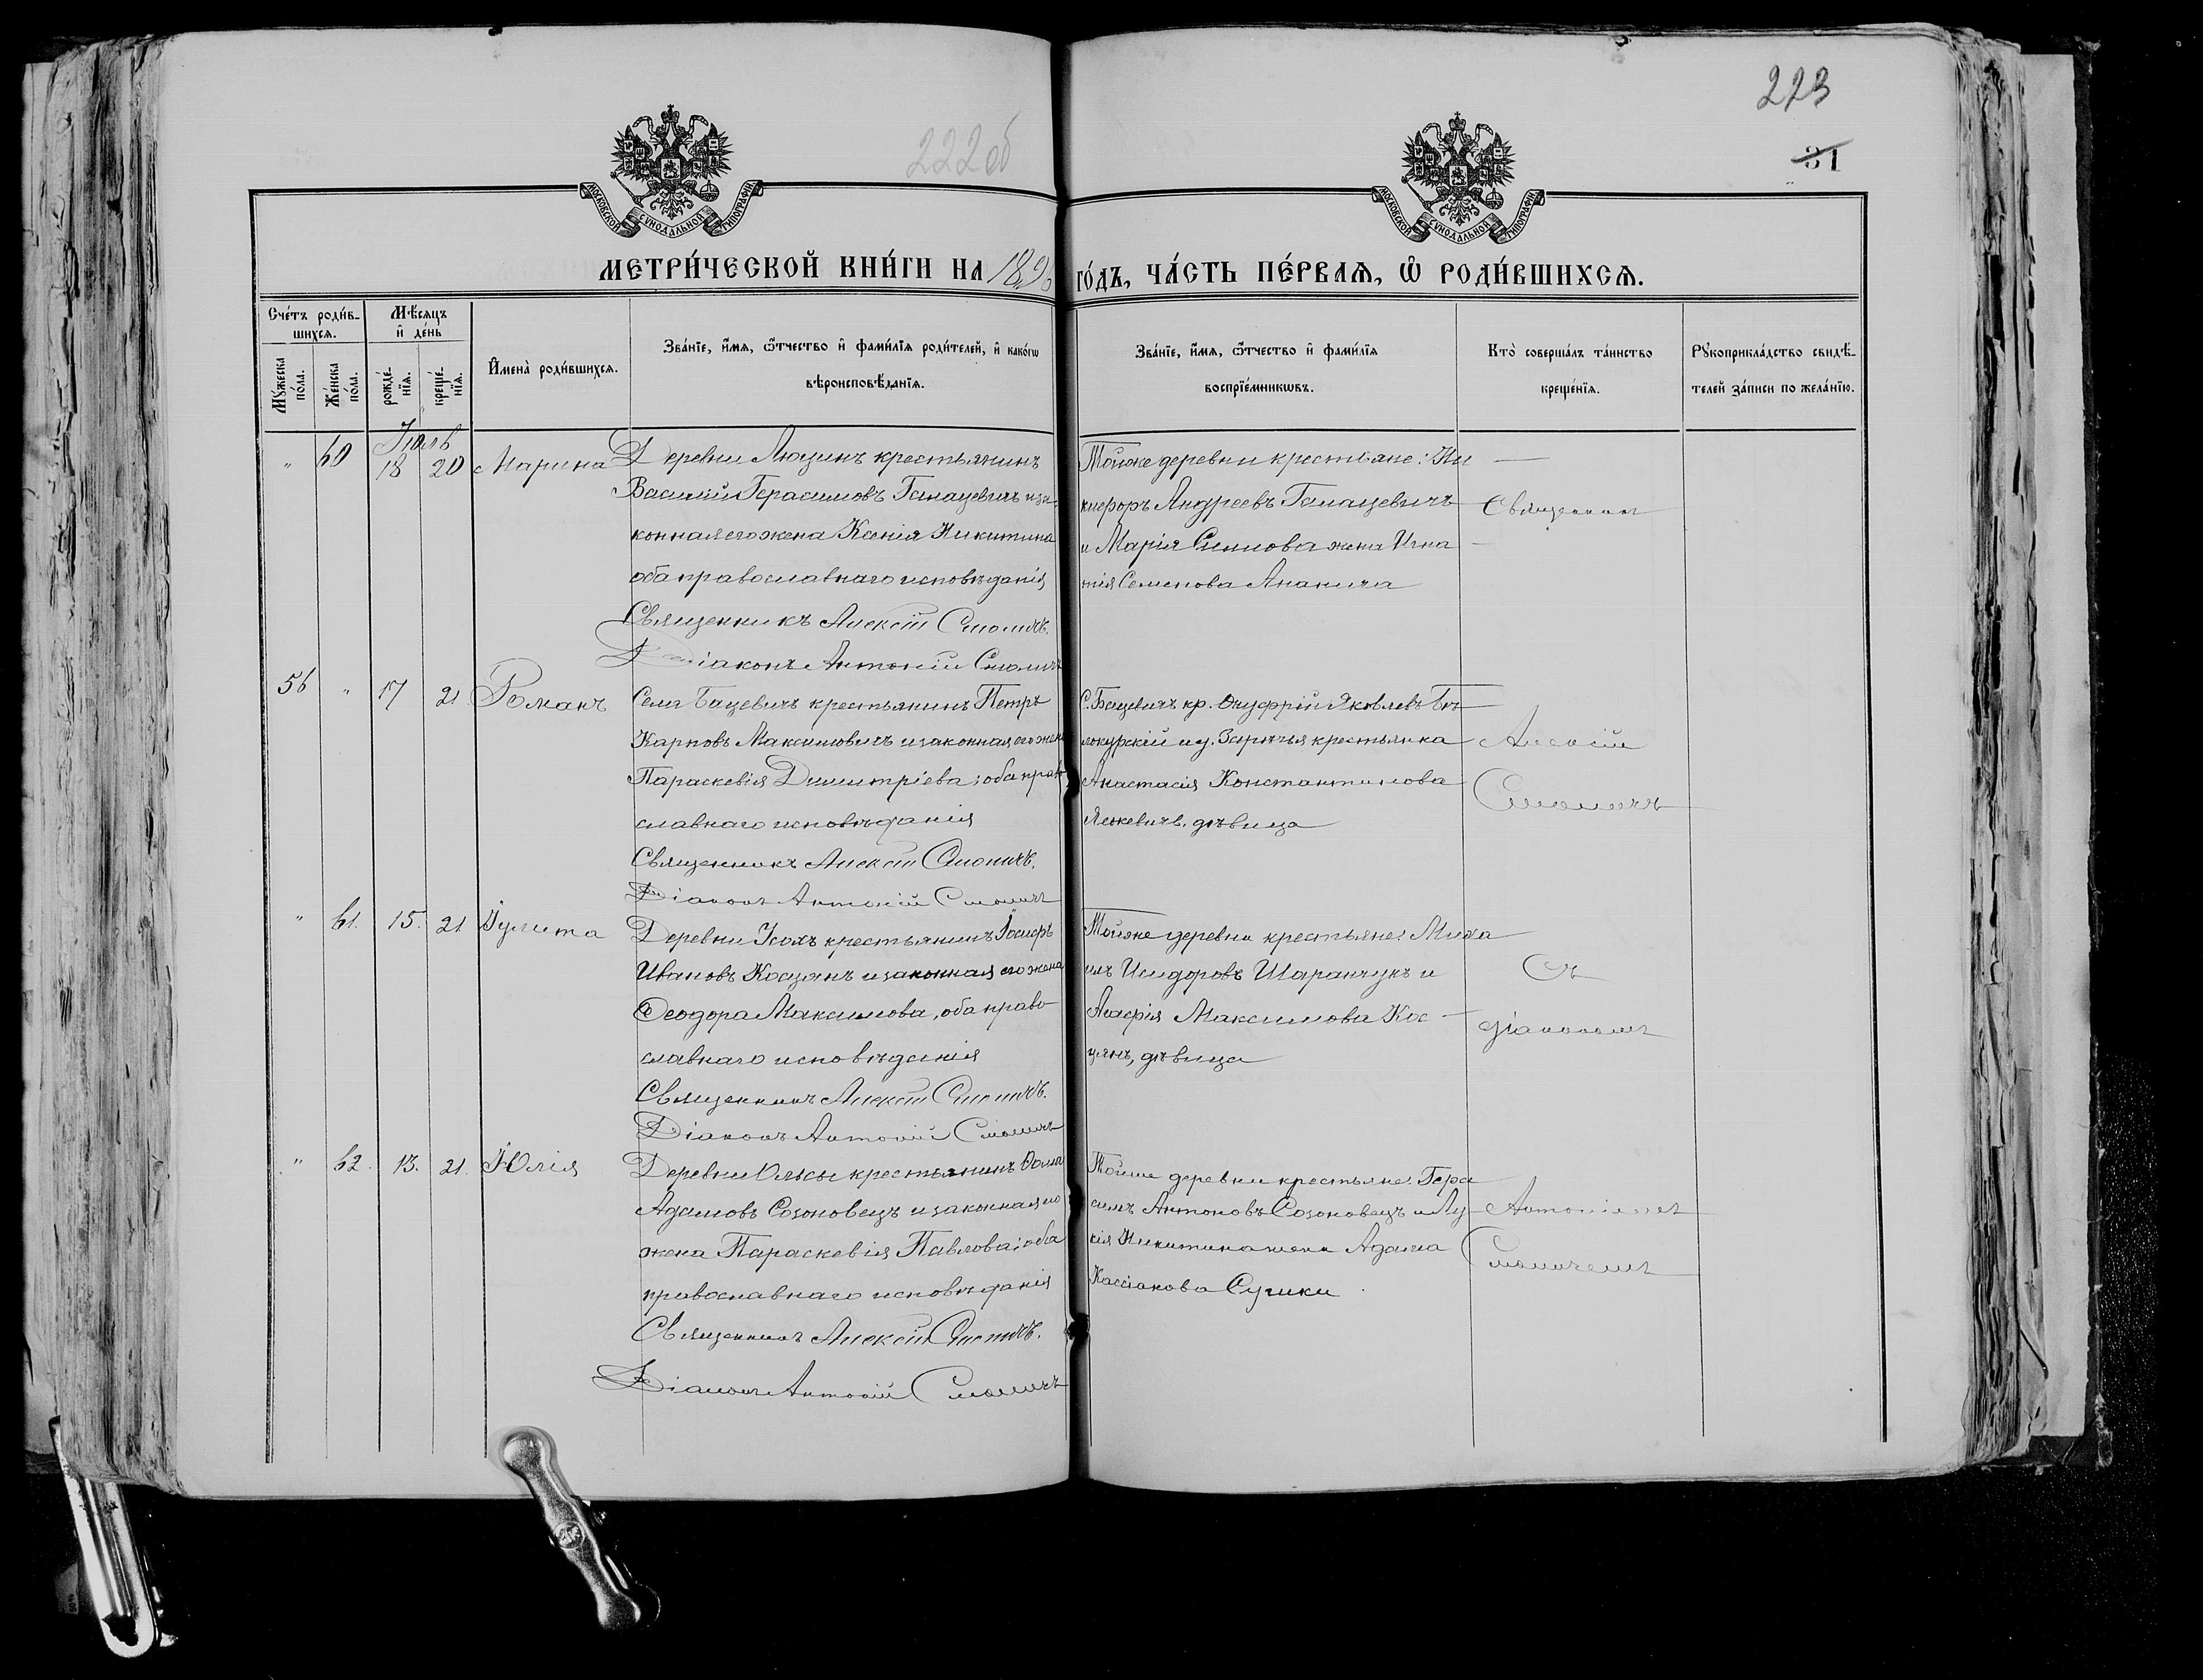 222об
223
31
МОСКОВСКОЙ СѴНОДАЛЬНОЙ ТИПОГРАФІИ
МОСКОВСКОЙ СѴНОДАЛЬНОЙ ТИПОГРАФІИ
МЕТРИ́ЧЕСКОЙ КНИ́ГИ НА 1896
ГО́ДЪ, ЧА́СТЬ ПЕ́РВАѦ, Ѡ҆ РОДИ́ВШИХСѦ.
Сче́тъ роди́в-
шихсѧ.
Мѣ́сѧцъ
и҆ де́нь
Мꙋ́жеска по́ла.
Же́нска по́ла.
рожде́-
нїѧ.
креще́-
нїѧ.
И҆мена̀ роди́вшихсѧ.
Зва́нїе, и҆́мѧ, ѻ҆́тчество и҆ фами́лїѧ роди́телей, и҆ како́гѡ
вѣроисповѣ́данїѧ.
Зва́нїе, и҆́мѧ, ѻ҆́тчество и҆ фами́лїѧ
воспрїе́мникѡвъ.
Кто̀ соверша́лъ та́инство
креще́нїѧ.
Рꙋкоприкла́дство свидѣ́-
телей за́писи по жела́нїю.
Іюль
" 60 18 20 Марина
Деревни Люзинъ крестьянинъ
Василій Герасимовъ Гамацевичъ и за-
конная его жена Ксенія Никитина
оба православнаго исповѣданія
Священникъ Алексій Смоличъ.
Діаконъ Антоній Смоличъ
Тойже деревни крестьяне: Ни
кифоръ Андреевъ Гамацевичъ
и Марія Симова жена Игна
тія Семенова Ананича
Священникъ
56 " 17 21 Романъ
Села Бацевичъ крестьянинъ Петръ
Карповъ Максимовичъ и законная его жена
Параскевія Димитріева; оба право
славнаго исповѣданія
Священникъ Алексій Смоличъ.
Діаконъ Антоній Смоличъ
С. Бацевичъ кр. Онуфрій Яковлевъ Бѣ
локурскій и д. Зарѣчья крестьянка
Анастасія Константинова
Яскевичъ, дѣвица
Алексій
Смоличъ
" 61. 15. 21 Іулита
Деревни Усохъ крестьянинъ Іосифъ
Ивановъ Косцянъ и законная его жена
Ѳеодора Максимова, оба право
славнаго исповѣданія
Священникъ Алексій Смоличъ.
Діаконъ Антоній Смоличъ
Тойже деревни крестьяне: Миха
илъ Исидоровъ Шаранчукъ и
Агафія Максимова Кос
цянъ, дѣвица
Съ
діакономъ
" 62. 13. 21. Юлія
Деревни Ольсы крестьянинъ Ѳома
Адамовъ Созоновецъ и законная его
жена Параскевія Павлова; оба
православнаго исповѣданія
Священникъ Алексій Смоличъ.
Діаконъ Антоній Смоличъ
Тойже деревни крестьяне: Гера
симъ Антоновъ Созоновецъ и Лу
кія Никитина жена Адама
Кассіанова Сушки
Антоніемъ
Смоличемъ